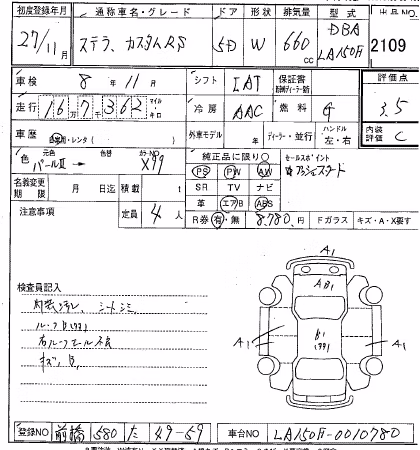 初度登録年月 通称車名・グレード ドア 形状 排気量 型式 出品NO
27/11月 ステラ、カスタムRS 5D W 660cc DBA LA150F 2109
車検 8年11月 シフト IAT 保証書 評価点
走行 16万7千362 マイル キロ 冷房 AAC 燃料 G 3.5
車歴 自家用・レンタ( ) 外車モデル 年 ディーラー・並行 ハンドル 左・右 内装評価 C
色 元色 パールⅢ → 色替 カラーNO X99 純正品に限り○ セールスポイント
PS PW AW
名義変更期限 月 日迄 積載 t SR TV ナビ
注意事項 定員 4人 革 エアB ABS
R券 有・無 8,780円 Fガラス キズ・A・X要す
検査員記入
内装汚れ、シートシミ
キズ、B、
A1
AB1
A1 B1 A1
登録NO 前橋 580 た 49-59 車台NO LA150F-0010780